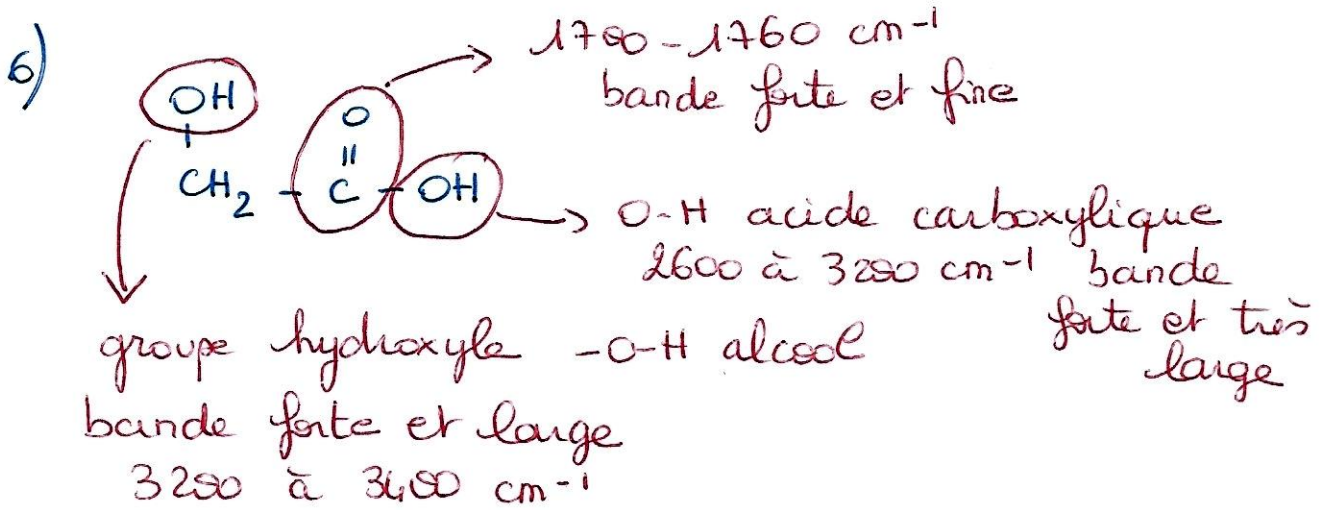 6)
1700 - 1760 cm⁻¹
bande forte et fine
OH
O
||
CH₂ - C - OH
O-H acide carboxylique
2600 à 3200 cm⁻¹ bande
forte et très
large
groupe hydroxyle -O-H alcool
bande forte et large
3200 à 3400 cm⁻¹